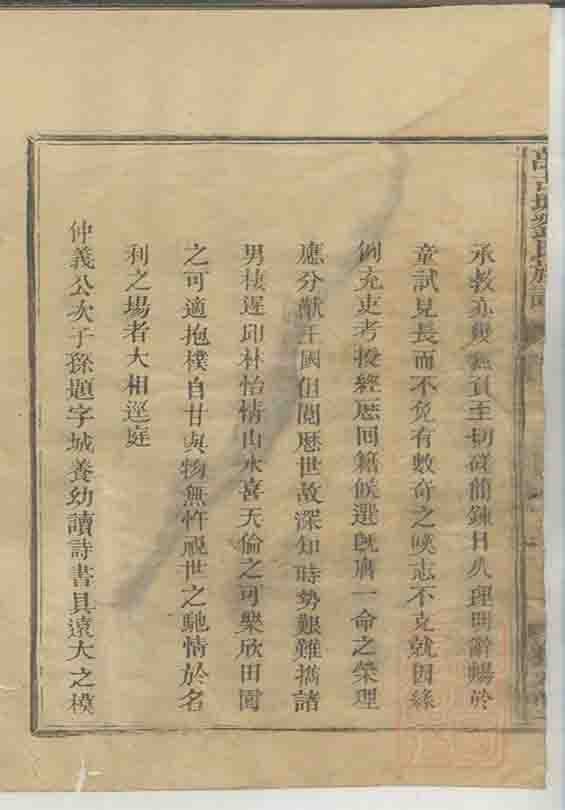 承教亦幾無負至切磋簡鍊日久理明辭暢於
童試見長而不免有數奇之嘆志不克就因緣
例充吏考授經歷回籍候選既膺一命之榮理
應分猷王國但閱歷世故深知時勢艱難攜諸
男棲遲邱林怡情山水喜天倫之可樂欣田園
之可適抱樸自甘與物無忤視世之馳情於名
利之場者大相逕庭
仲義公次子孫題字城養幼讀詩書具遠大之模